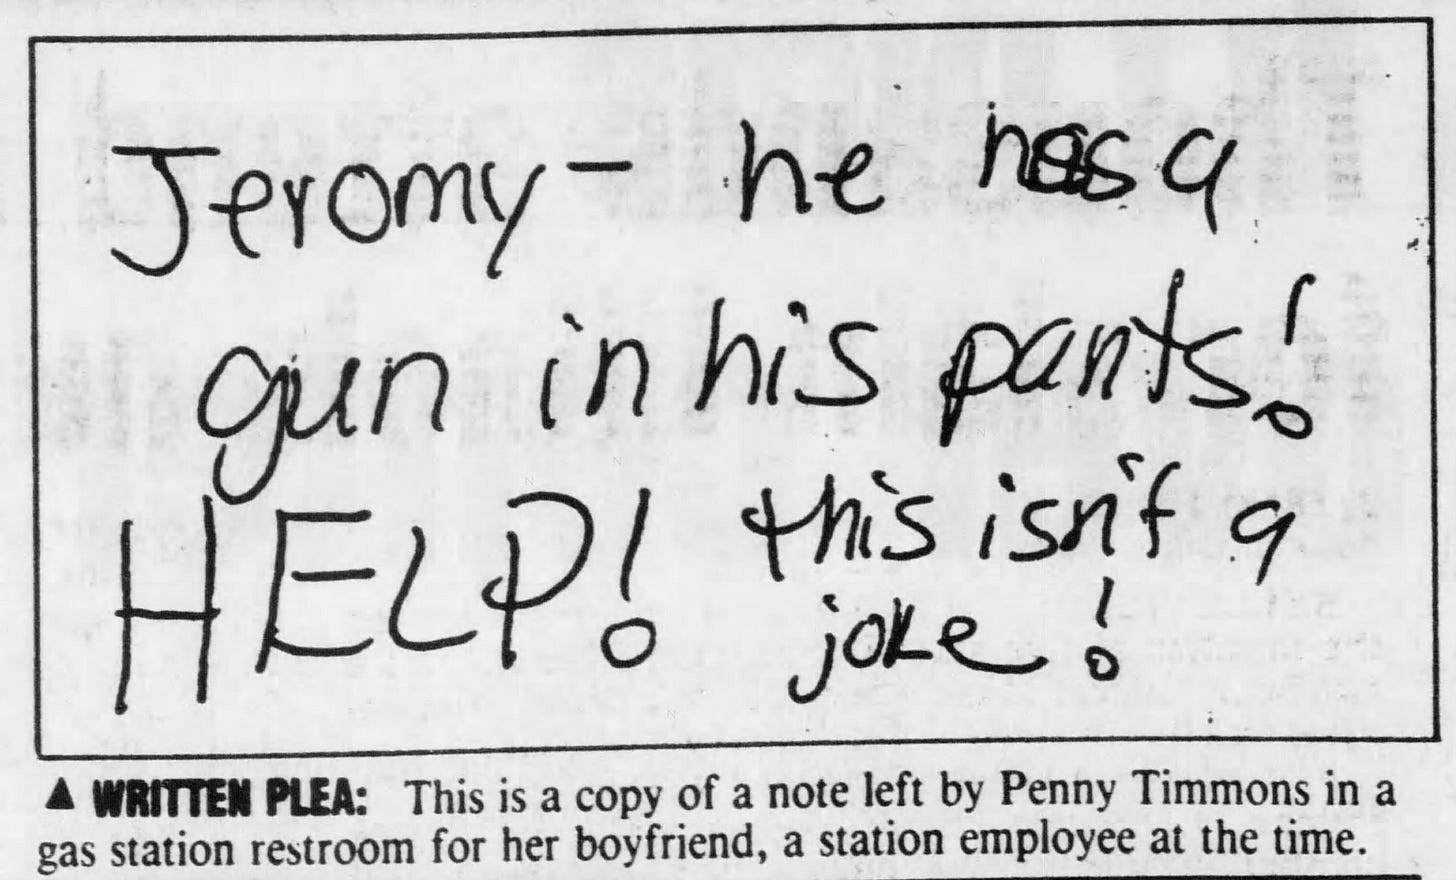 Jeromy - he has a
gun in his pants!
HELP! this isn't a
joke!
▲ WRITTEN PLEA: This is a copy of a note left by Penny Timmons in a
gas station restroom for her boyfriend, a station employee at the time.